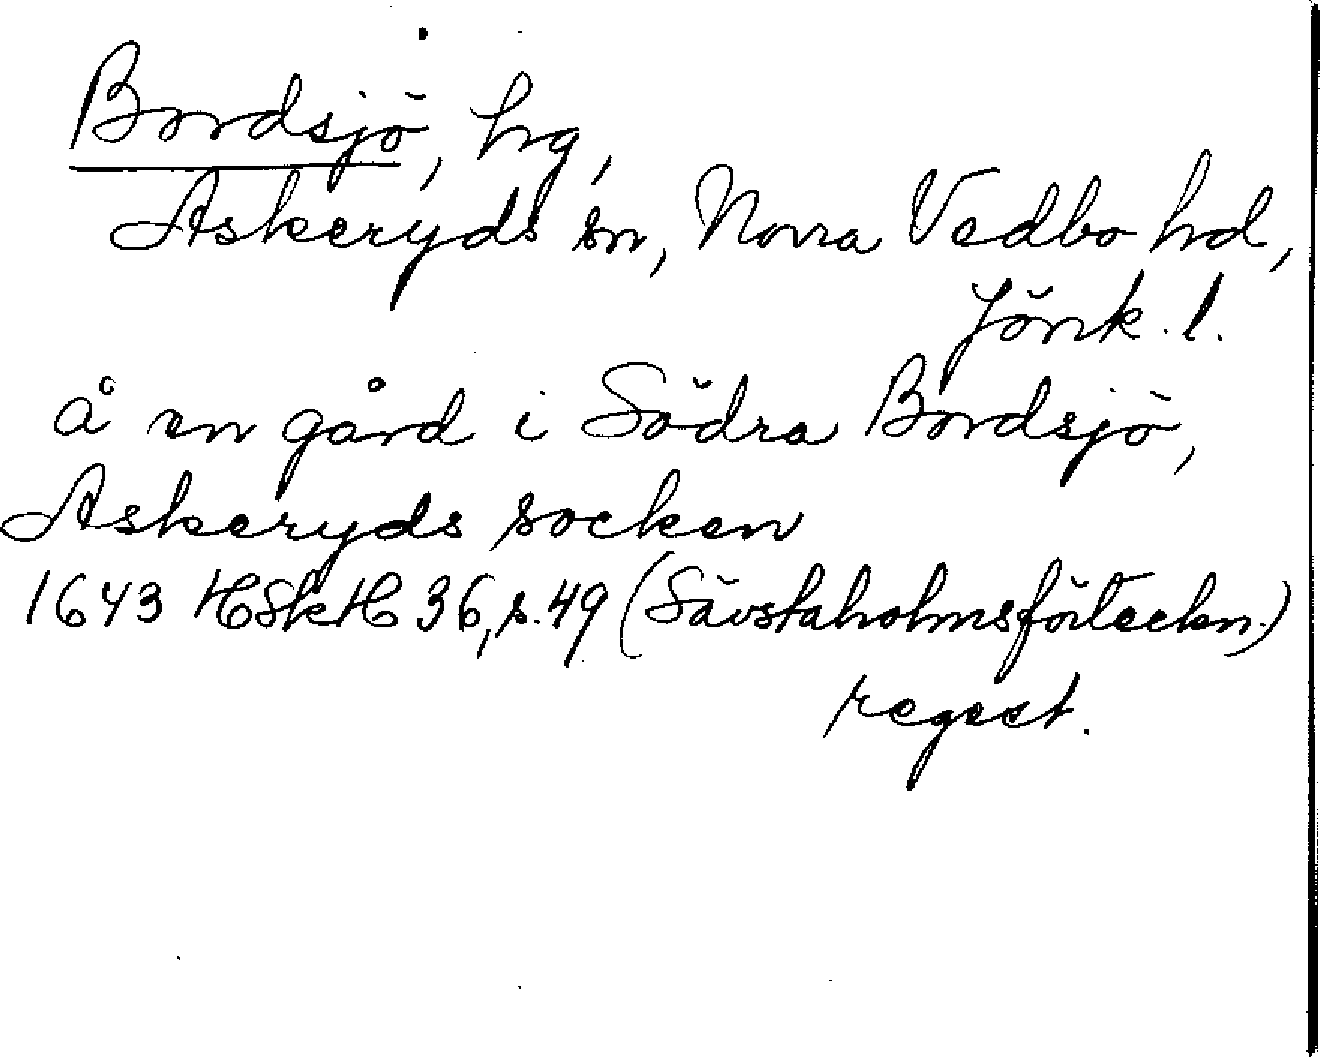 Bordsjö, hg,
Askeryds sn, Norra Vedbo hd,
Jönk. l.
å en gård i Södra Bordsjö,
Askeryds socken
1643 HSkH 36, s. 49 (Sävstaholmsförteckn.)
regest.